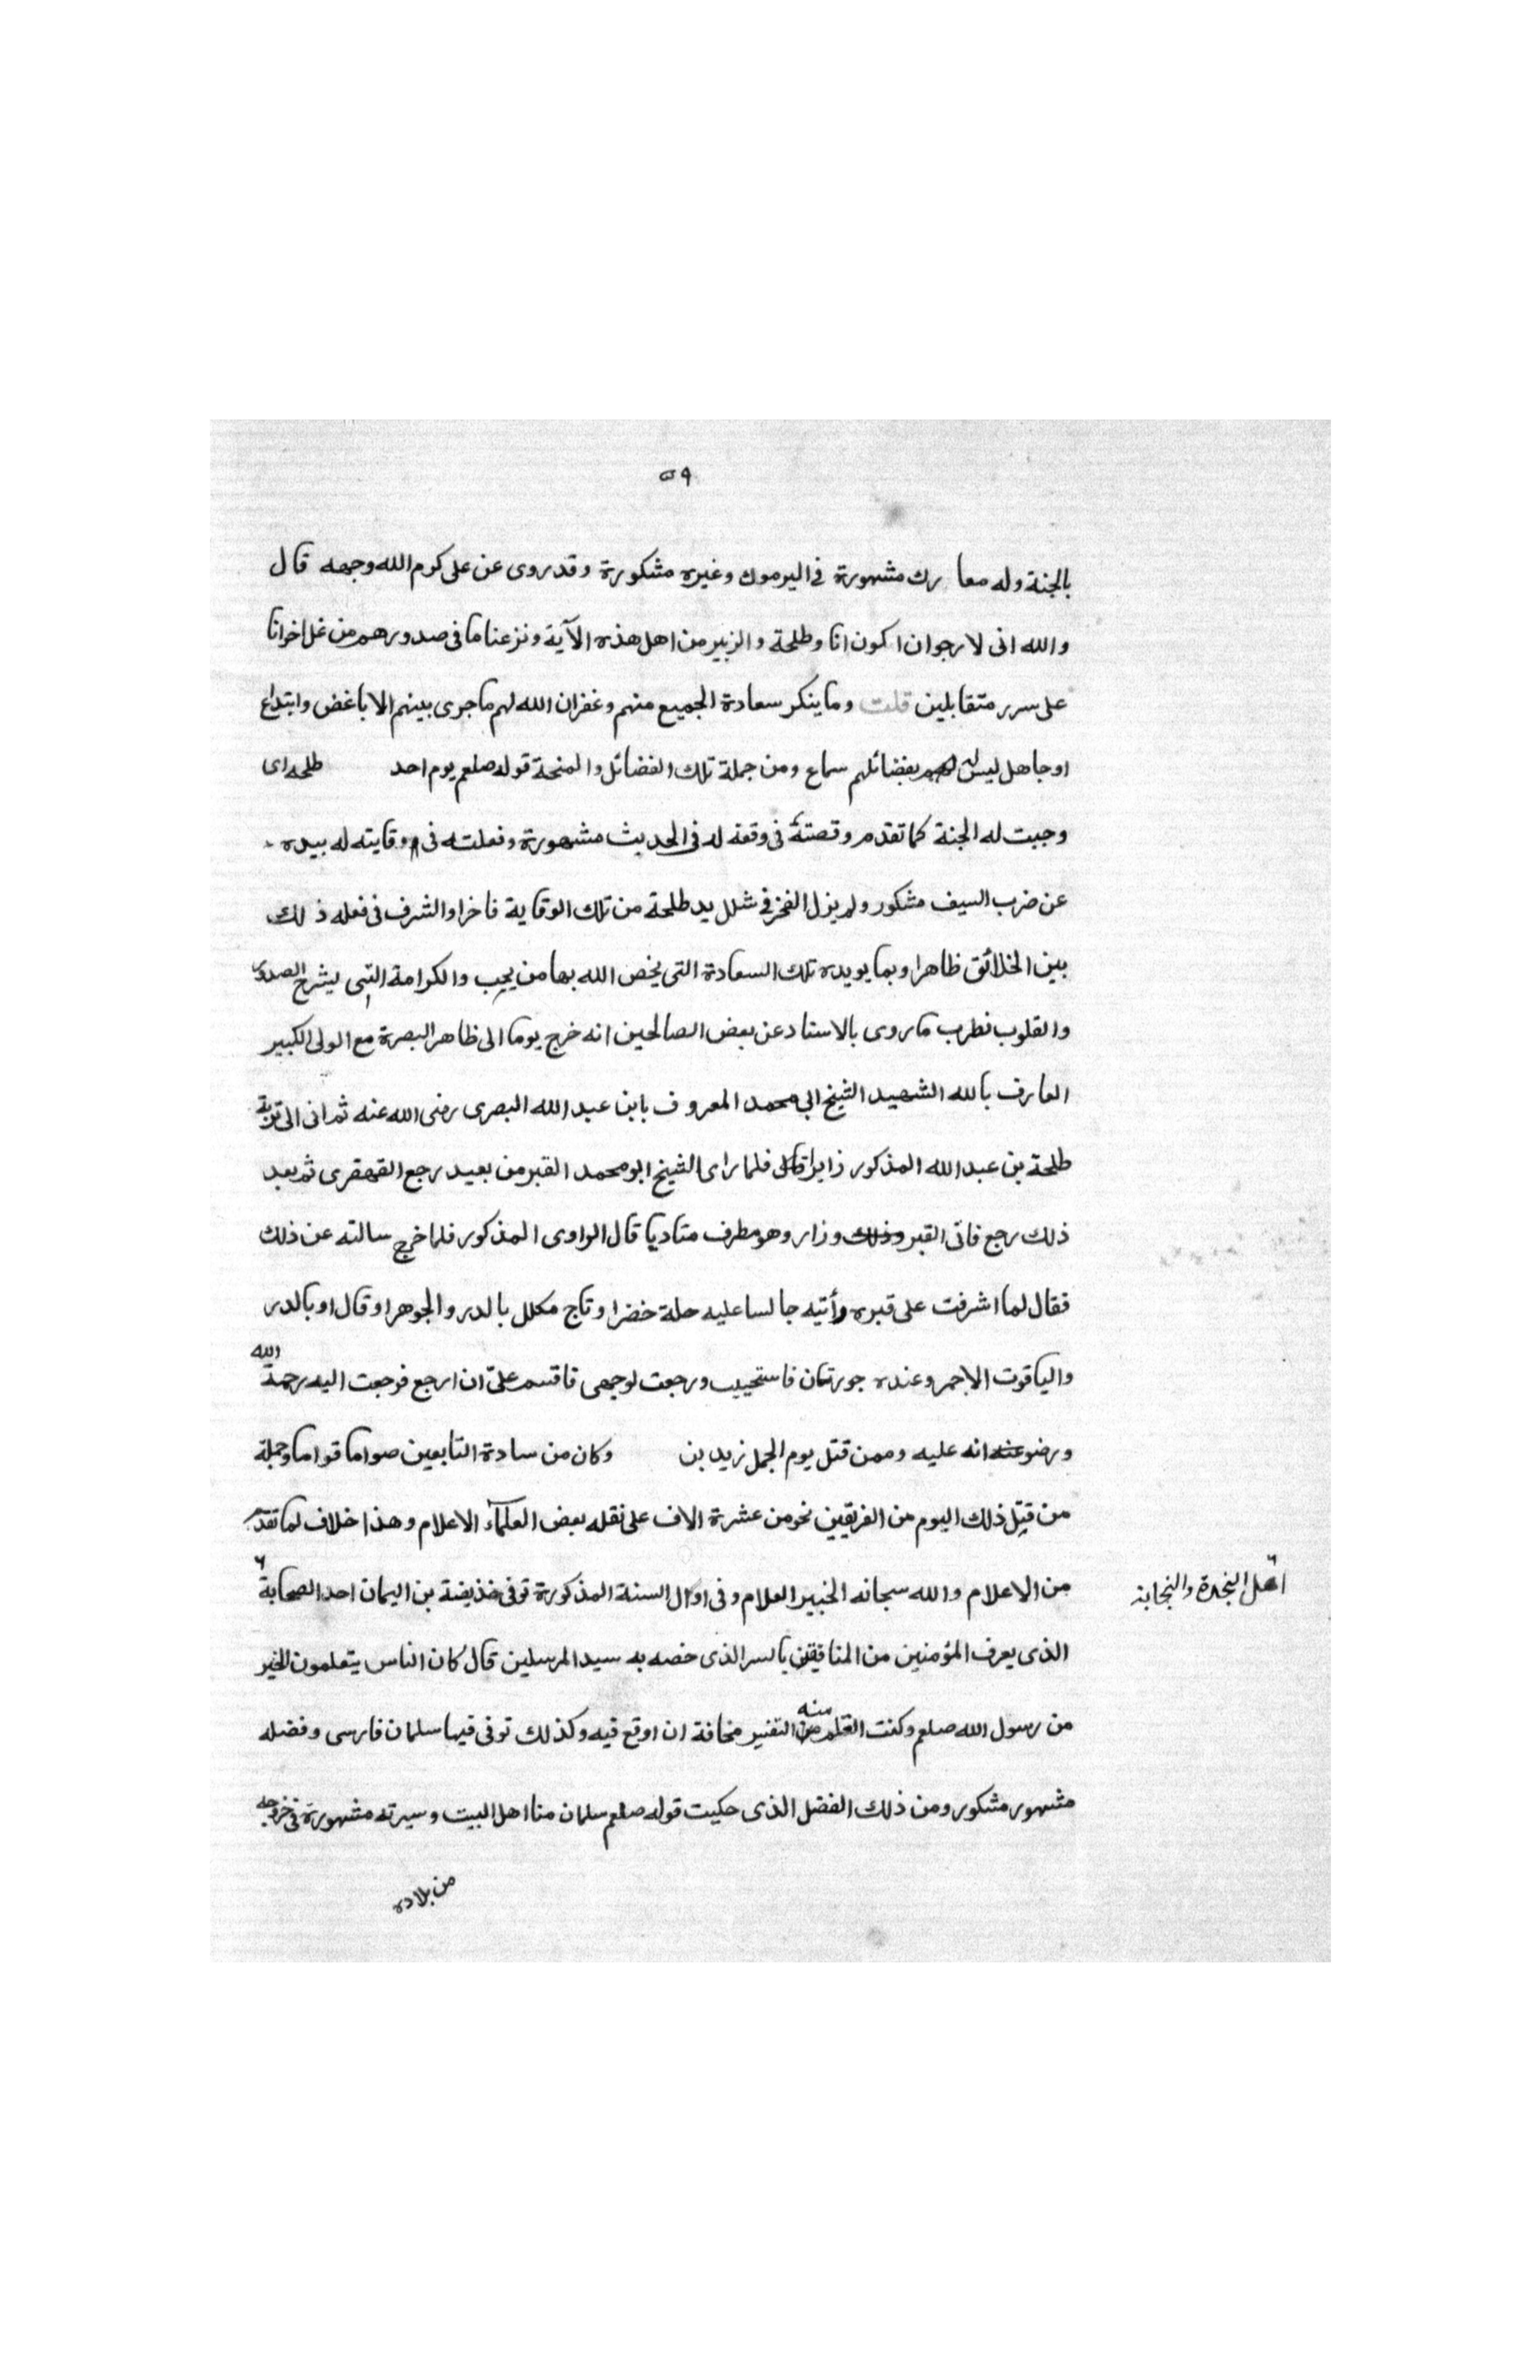 ٥٩
بالجنة وله معا رك مشهورة في اليرموك وغيره مشكورة وقد روى عن على كرم الله وجهه قال
والله انى لا رجوان اكون انا وطلحة والزبير من اهل هذه الآية ونزعنا ما فى صدورهم من غل اخوانا
على سرر متقابلين قلت وما ينكر سعادة الجميع منهم وغفران الله لهم ما جرى بينهم الا باغض وابتداع
او جاهل ليس له بفضائلهم سماع ومن جملة تلك الفضائل والمنحة قوله صلعم يوم احد طلحه اى
وجبت له الجنة كما تقدم وقصته فى وقعة له فى الحديث مشهورة وفعلته فى وقايته له بيده
عن ضرب السيف مشكور ولم يزل الفخر فى شلل يد طلحة من تلك الوقاية فاخرا والشرف فى فعله ذلك
بين الخلائق ظاهرا وبما يويده تلك السعادة التى يخص الله بها من يحب والكرامة التى يشرح الصدور
والقلوب نطرب ما روى بالاسناد عن بعض الصالحين انه خرج يوما الى ظاهر البصرة مع الولى الكبير
العارف بالله الشهيد الشيخ ابى محمد المعروف بابن عبد الله البصرى رضى الله عنه ثم اتى الى تربة
طلحة بن عبد الله المذكور زايرا فلما راى الشيخ ابو محمد القبر من بعيد رجع القهقرى ثم بعد
ذلك رجع فاتى القبر وذلك وزار وهو مطرف متاديا قال الراوى المذكور فلما خرج سالته عن ذلك
فقال لما اشرفت على قبره رأتيه جالسا عليه حلة خضرا وتاج مكلل بالدر والجوهر او قال او بالدر
والياقوت الاحمر وعنده حورتان فاستحييب ورجعت لوجهى فاقسم علىّ ان ارجع فرجعت اليه رحمة الله
ورضوعنه انه عليه وممن قتل يوم الجمل زيد بن وكان من سادة التابعين صواما قواما وجملة
من قتل ذلك اليوم من الفريقين نحو من عشرة الاف على نقله بعض العلمآء الاعلام وهذا خلاف لما تقدم
من الاعلام والله سبحانه الخبير العلام وفى اول السنة المذكورة توفى حذيفة بن اليمان احد الصحابة
اهل النجدة والنجابة
الذى يعرف المؤمنين من المنافيقين بالسر الذى خصه به سيد المرسلين قال كان الناس يتعلمون الخير
من رسول الله صلعم وكنت اتعلم منه التفنير مخافة ان اوقع فيه وكذلك توفى فيها سلمان فارسى وفضله
مشهور مشكور ومن ذلك الفضل الذى حكيت قوله صلعم سلمان منا اهل البيت وسيرته مشهورة فى خروجه
من بلاده